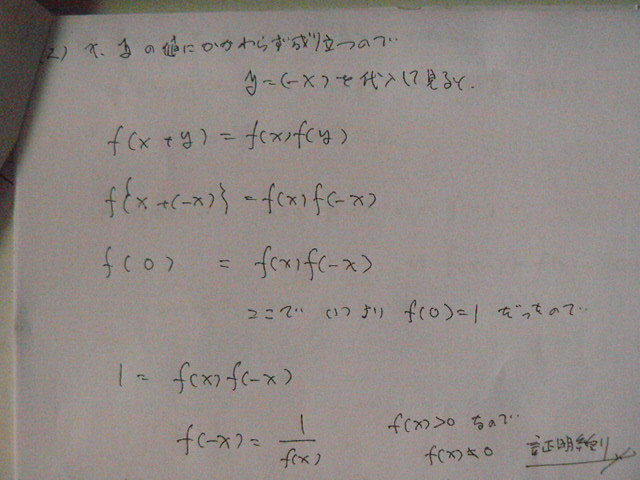 (2) x、yの値にかかわらず成り立つので
y=(-x)を代入して見ると、
f(x+y)=f(x)f(y)
f{x+(-x)}=f(x)f(-x)
f(0) = f(x)f(-x)
ここで (1)より f(0)=1 だったので
1= f(x)f(-x)
f(-x)= 1/f(x) f(x)>0 なので
f(x)≠0 証明終り